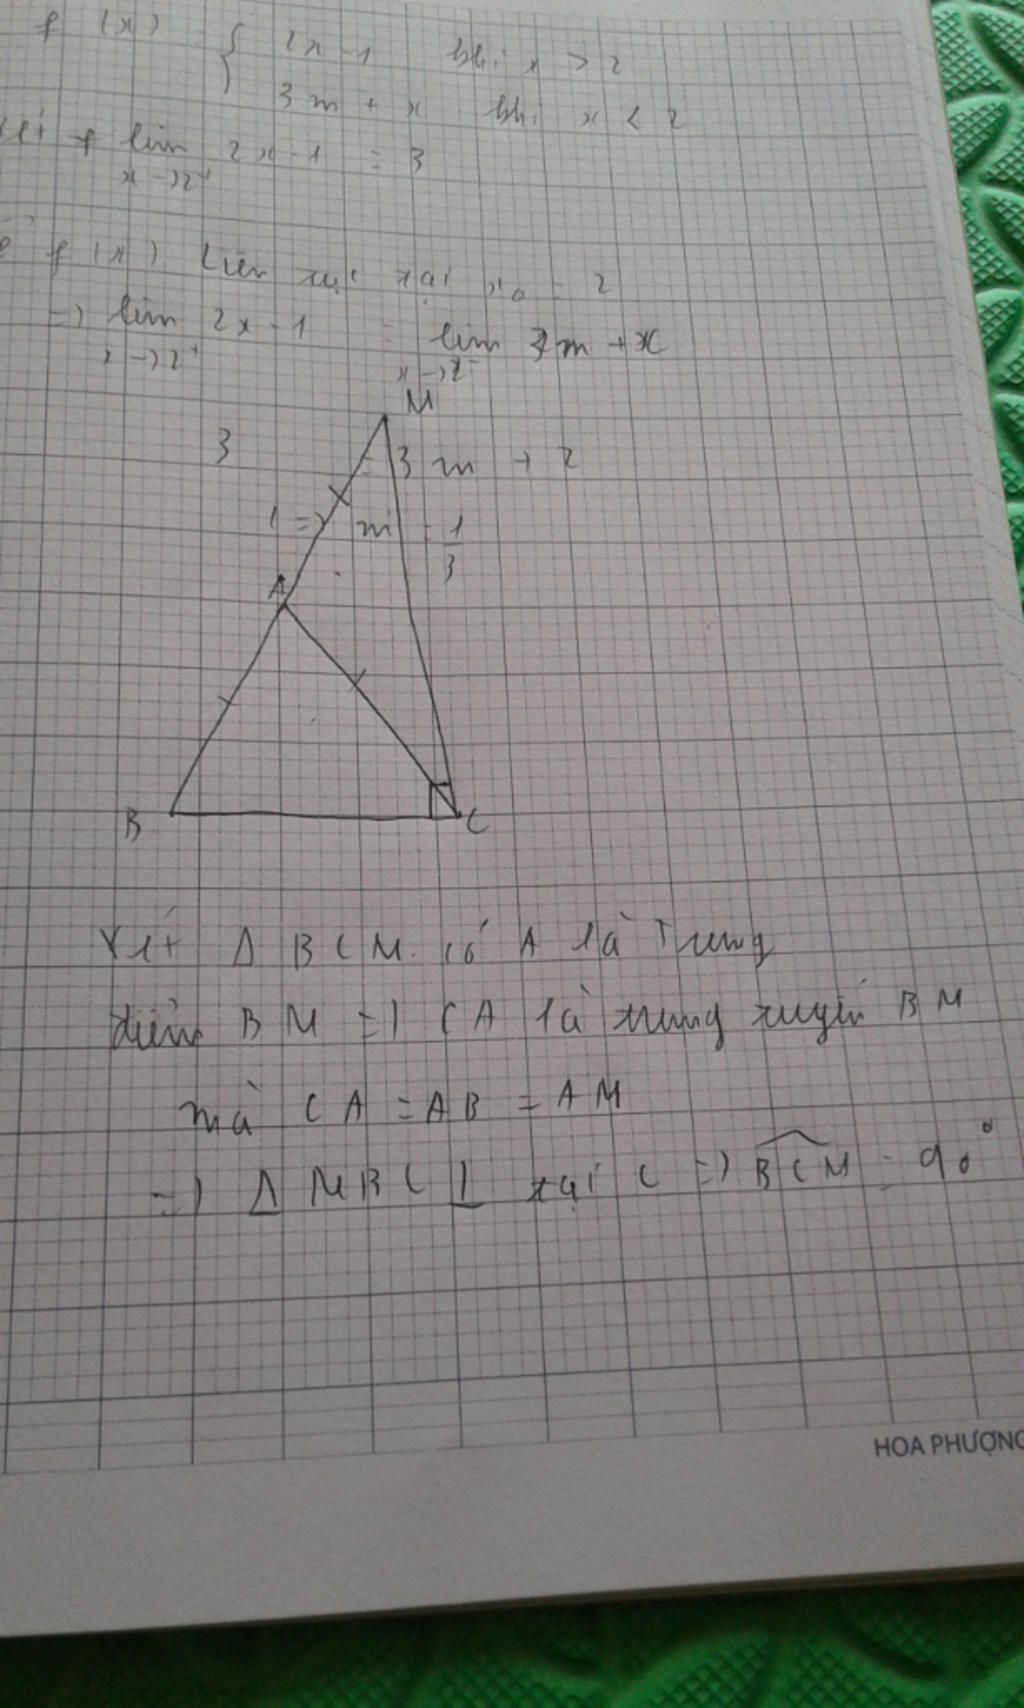 f(x) { 2x - 1 khi x > 2
3m + x khi x < 2
xét + lim 2x - 1 = 3
x -> 2+
f(x) liên tục tại x0 = 2
=> lim 2x - 1 = lim 3m + x
x -> 2+ x -> 2-
M
3 3m + 2
=> m = 1/3
A
B C
Xét Δ BCM có A là Trung
điểm BM => CA là trung tuyến BM
mà CA = AB = AM
=> Δ MBC ⊥ tại C => BCM = 90°
HOA PHƯỢNG